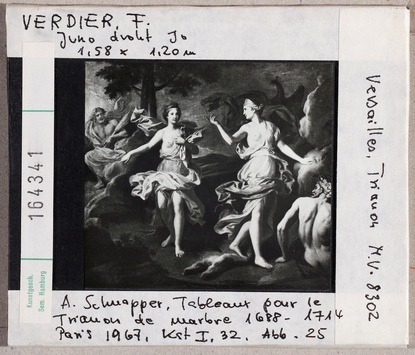 VERDIER, F.
Juno droht Jo
1,58 x 1,20 m
164341
Kunstgesch.
Sem. Hamburg
Versailles, Trianon M.V. 8302
A. Schnapper, Tableaux pour le
Trianon de marbre 1688-1714
Paris 1967, Kat I, 32, Abb. 25